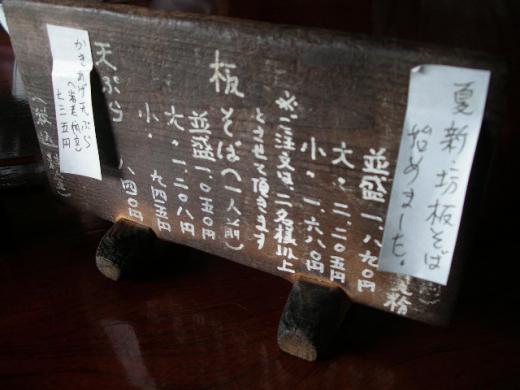 夏新・坊板そば
始めました。
並盛一、八九〇円
大・二、二〇五円
小・一、六八〇円
※ご注文は、二名様以上
とさせて頂きます
板
そば(一人前)
並盛一、〇五〇円
大・一、二〇八円
小・九四五円
天ぷら
八四〇円
かきあげ天ぷら
七三五円